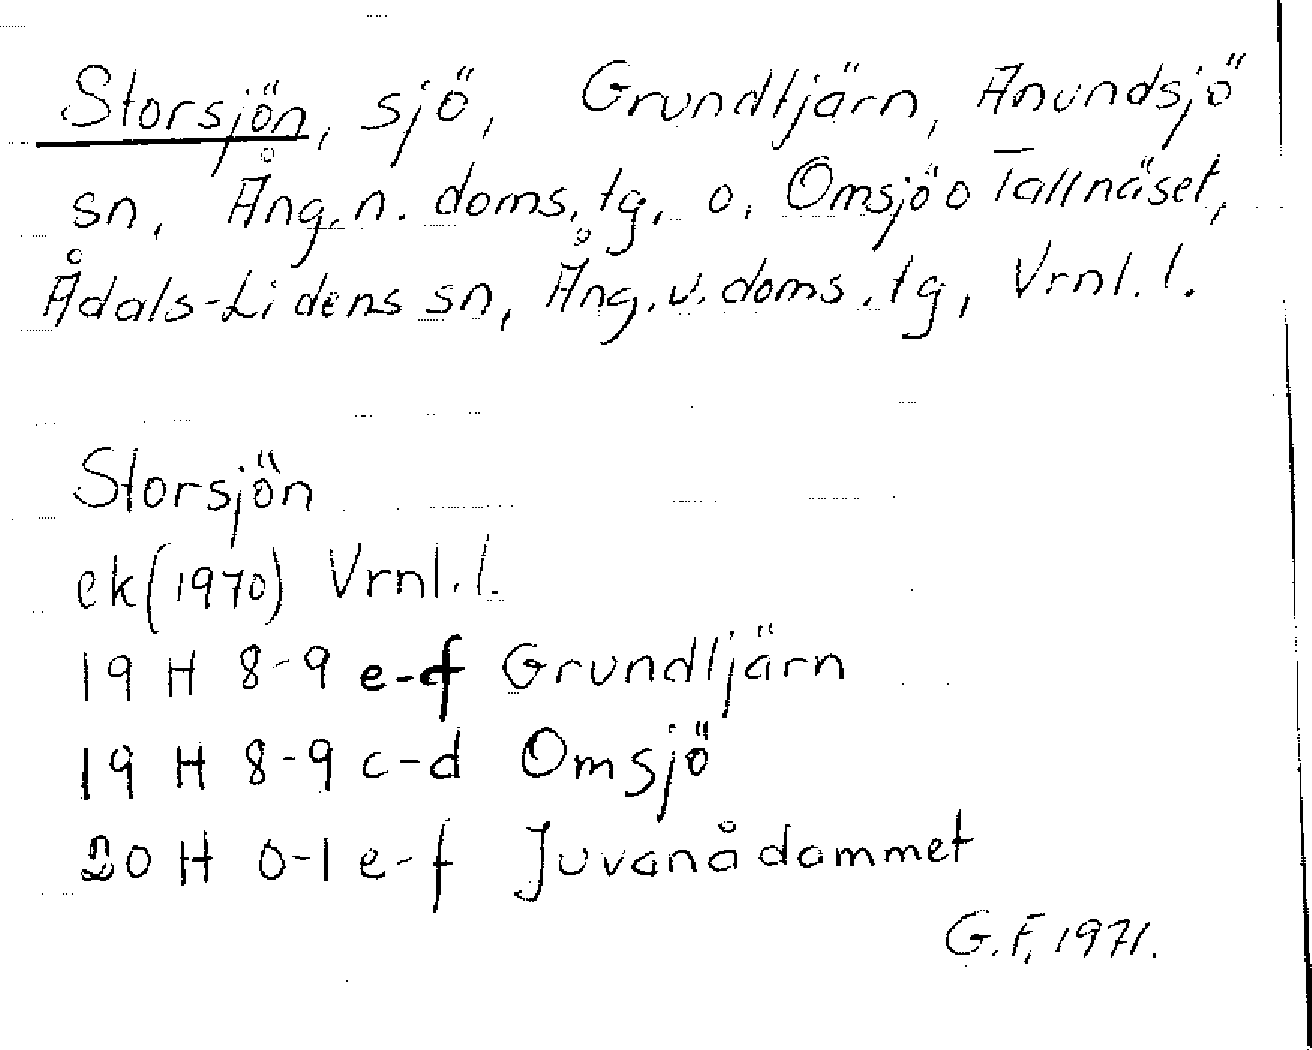 Storsjön, sjö, Grundtjärn, Anundsjö
sn, Ång. n. doms. tg, o. Omsjö o Tallnäset,
Ådals-Lidens sn, Ång. v. doms. tg, Vrnl. l.
Storsjön
ek (1970) Vrnl. l.
19 H 8-9 e-f Grundtjärn
19 H 8-9 c-d Omsjö
20 H 0-1 e-f Juvanådammet
G. F. 1971.